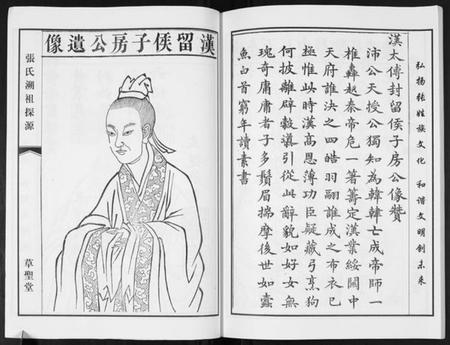 弘扬张姓族文化 和谐文明创未来
漢太傅封留侯子房公像贊
沛公天授公獨知為韓韓亡成帝師一
椎轟趙秦帝危一箸籌定漢業綏關中
天府誰決之四皓羽翮誰成之布衣已
極惟此時漢高恩薄功臣疑藏弓烹狗
何披離辟穀導引從此辭貌如好女無
瑰奇庸庸者子多鬚眉揣摩後世如蠹
魚白首窮年讀素書
漢留侯子房公遺像
張氏溯祖探源
草聖堂